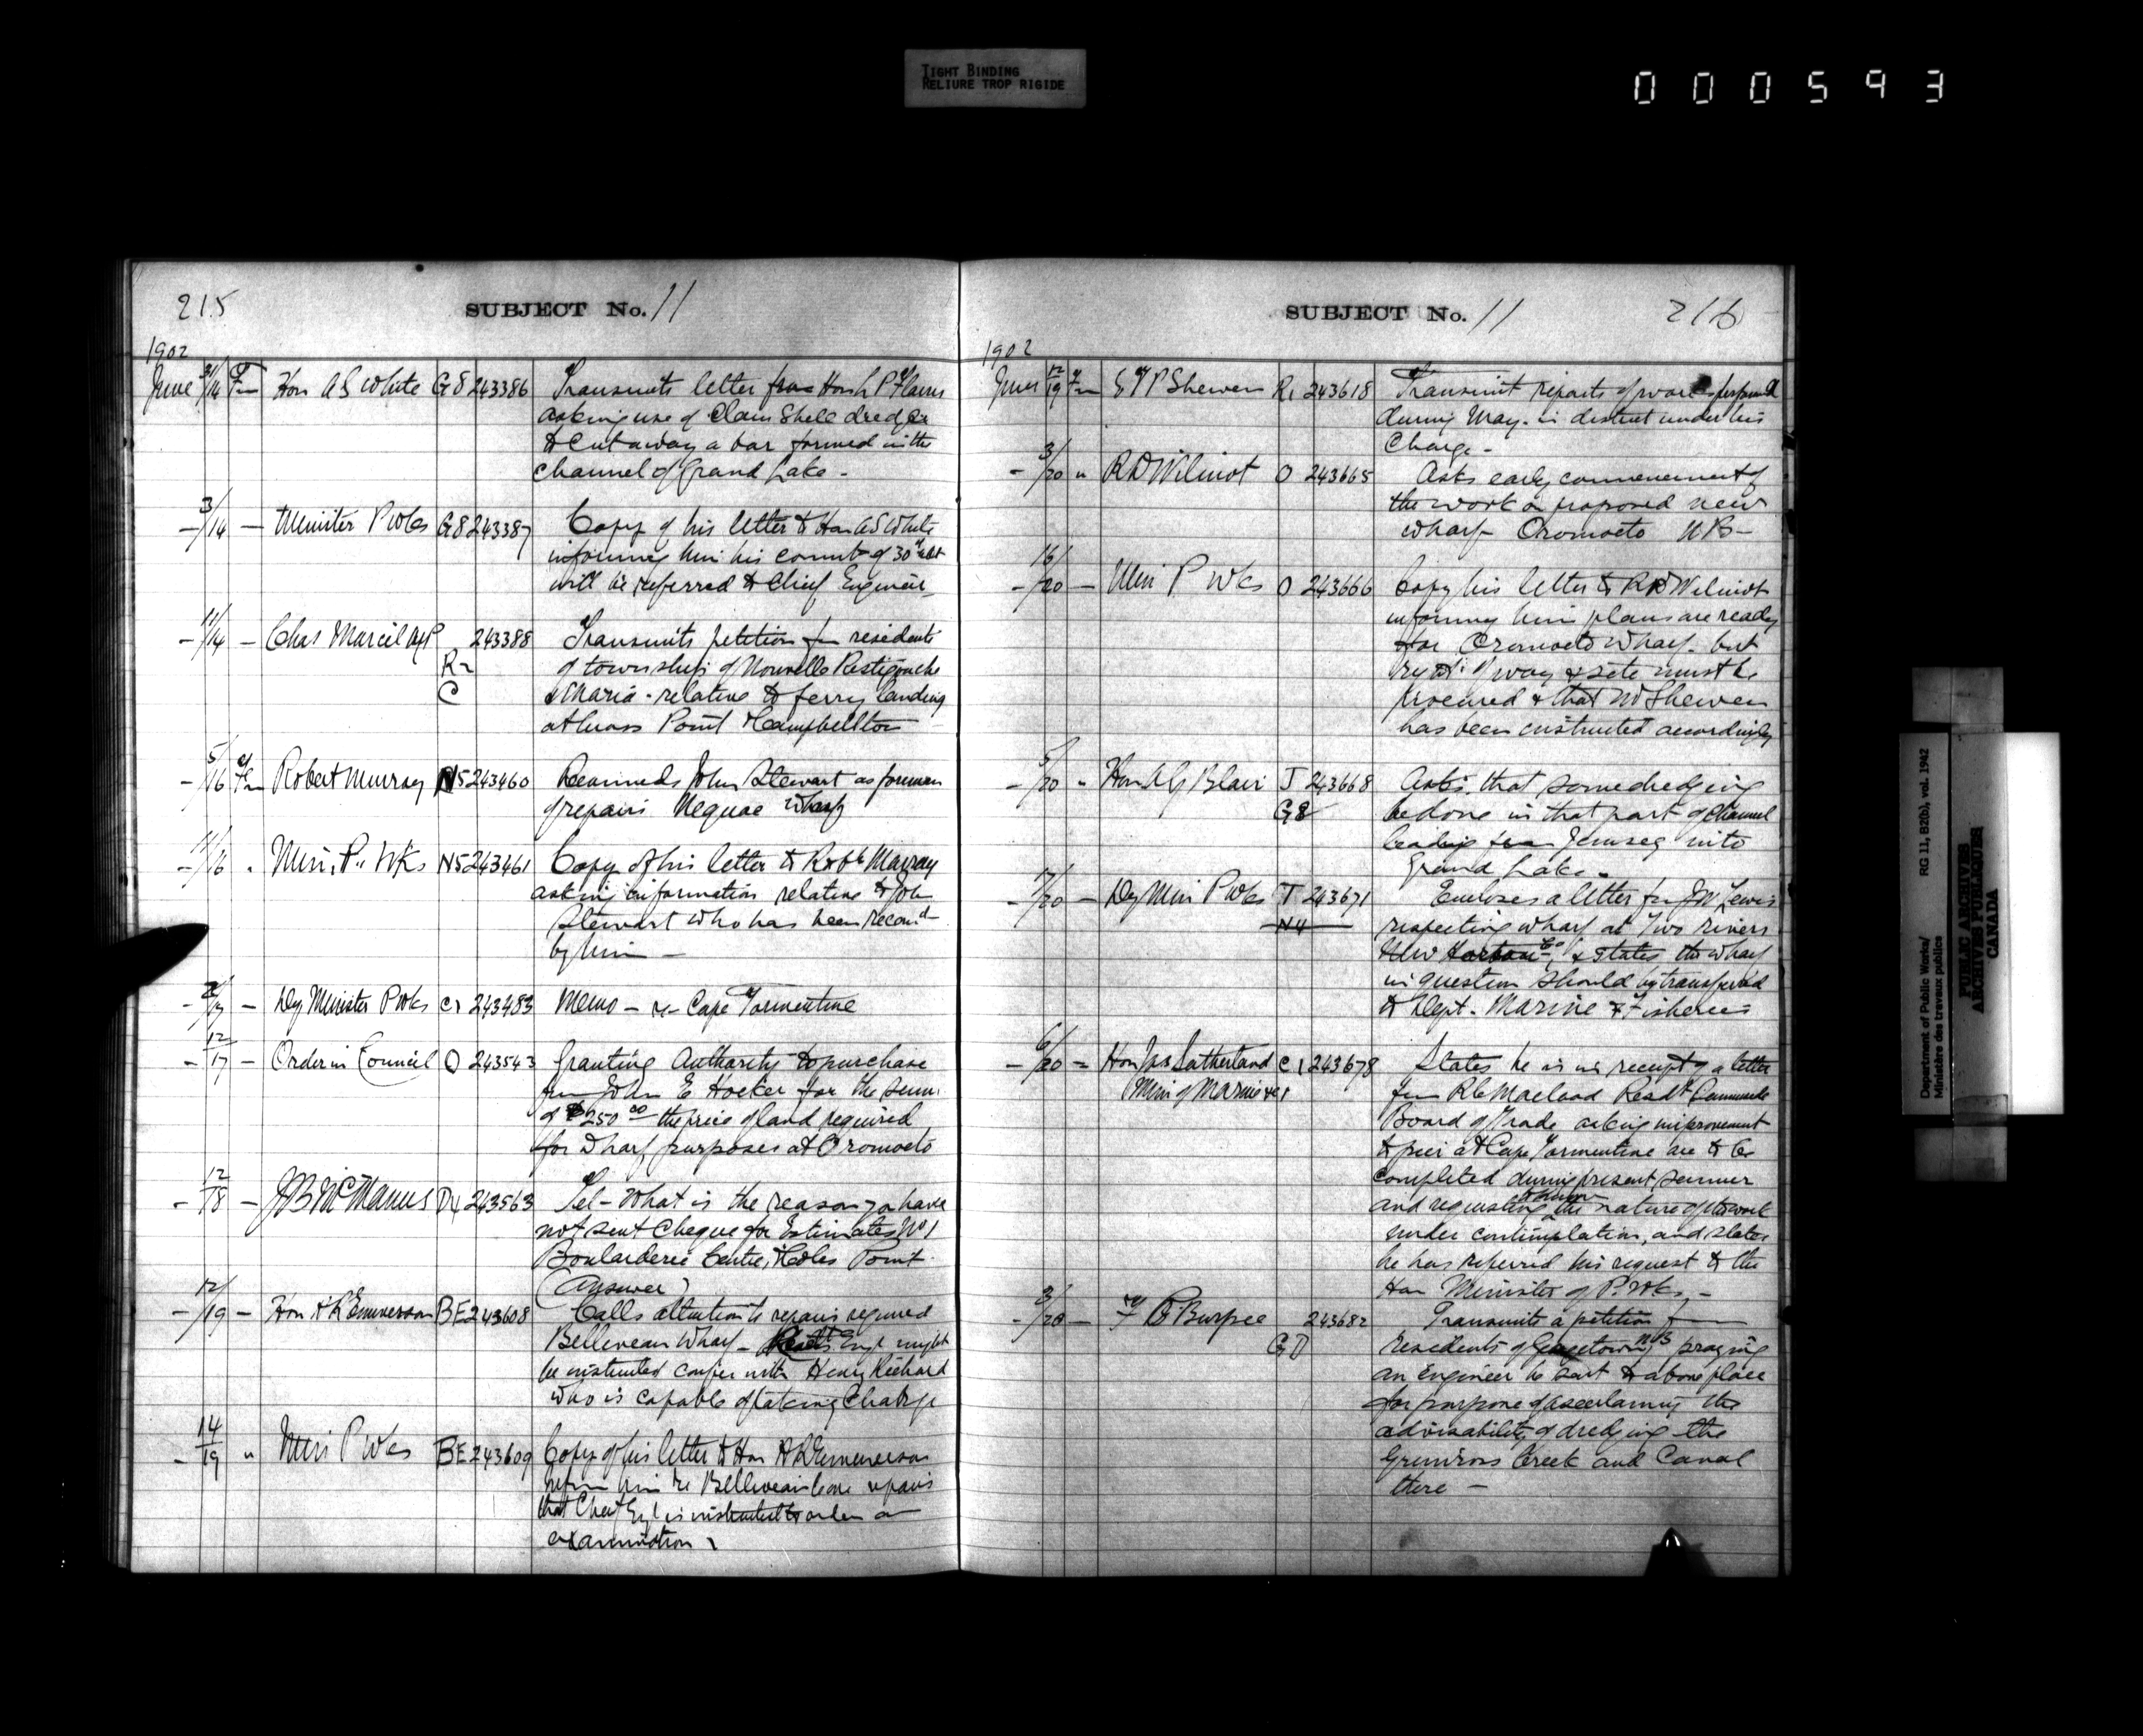 TIGHT BINDING
RELIURE TROP RIGIDE
000593
215
SUBJECT No. 11
1902
June 31/14 Fm Hon A S White G8 243386 Transmits letter from Hon L P
asking use of Clam Shell dredge
to cut away a bar formed in the
channel of Grand Lake -
3/14 - Minister P Wks G8 243387 Copy of his letter to Hon A S White
informing him his commt of 30th ult
will be referred to Chief Engineer
11/14 - Chas Marcil MP 243388 Transmits petition fm residents
R2 of townships of Nouvelle Restigouche
C & Maria - relative to ferry landing
at Cross Point & Campbellton
- 5/16 Fm Robert Murray N5 243460 Recommds John Stewart as foreman
of repairs Neguac Wharf
- 11/16 " Min. P. Wks N5 243461 Copy of his letter to Robt Murray
asking information relative to John
Stewart who has been recomd
by him -
- /17 - Dy Minister P Wks C1 243483 Memo - re Cape Tormentine
- 12/17 - Order in Council O 243543 Granting Authority to purchase
from John E Hocker for the sum
of $250.00 the price of land required
for Wharf purposes at Oromocto
- 12/18 - J B McManus 243563 Tel - What is the reason you have
not sent cheque for Estimates No 1
Boularderie Centre, & Coles Point
(Answer)
- 12/19 - Hon H R Emmerson BE 243608 Calls attention to repairs required
Belliveau Wharf - Resdt Engr might
be instructed confer with Henry Richard
who is capable of taking Charge
- 14/19 " Min P Wks BE 243609 Copy of his letter to Hon H R Emmerson
inform him re Belliveau repairs
that Chief Engr is instructed to order an
examination
SUBJECT No. 11
216
1902
June 12/19 Fm E T P Shewen R1 243618 Transmit reports of work performed
during May - in district under his
Charge -
- 3/20 " R D Wilmot O 243665 Asks early commencement of
the work on proposed new
wharf Oromocto N B -
- 16/20 - Min P Wks O 243666 Copy his letter to R D Wilmot
informing him plans are ready
for Oromocto Wharf - but
right of way & site must be
procured & that Mr Shewen
has been instructed accordingly
- 5/20 " Hon A G Blair J 243668 Asks that some dredging
G8 be done in that part of channel
leading from Jemseg into
Grand Lake -
- /20 - Dy Min P Wks T 243671 Encloses a letter fm J W Lewis
N4 respecting wharf at Two rivers
& states the wharf
in question should be transferred
to Dept. Marine & Fisheries
- 6/20 - Hon Jas Sutherland C1 243678 States he is in receipt of a letter
Min of Marine &c fm R C Macleod Resdt Summerside
Board of Trade asking improvement
to pier at Cape Tormentine are to be
completed during present summer
and requesting to know the nature of the work
under contemplation, and states
he has referred his request to the
Hon Minister of P. Wks, -
- 3/20 - F Burpee 243682 Transmits a petition from
GD residents of Gagetown, NB praying
an engineer be sent to above place
for purpose of ascertaining the
advisability of dredging the
Grimross Creek and Canal
there -
Department of Public Works/ RG 11, B2(b), vol. 1942
Ministère des travaux publics
PUBLIC ARCHIVES
ARCHIVES PUBLIQUES
CANADA